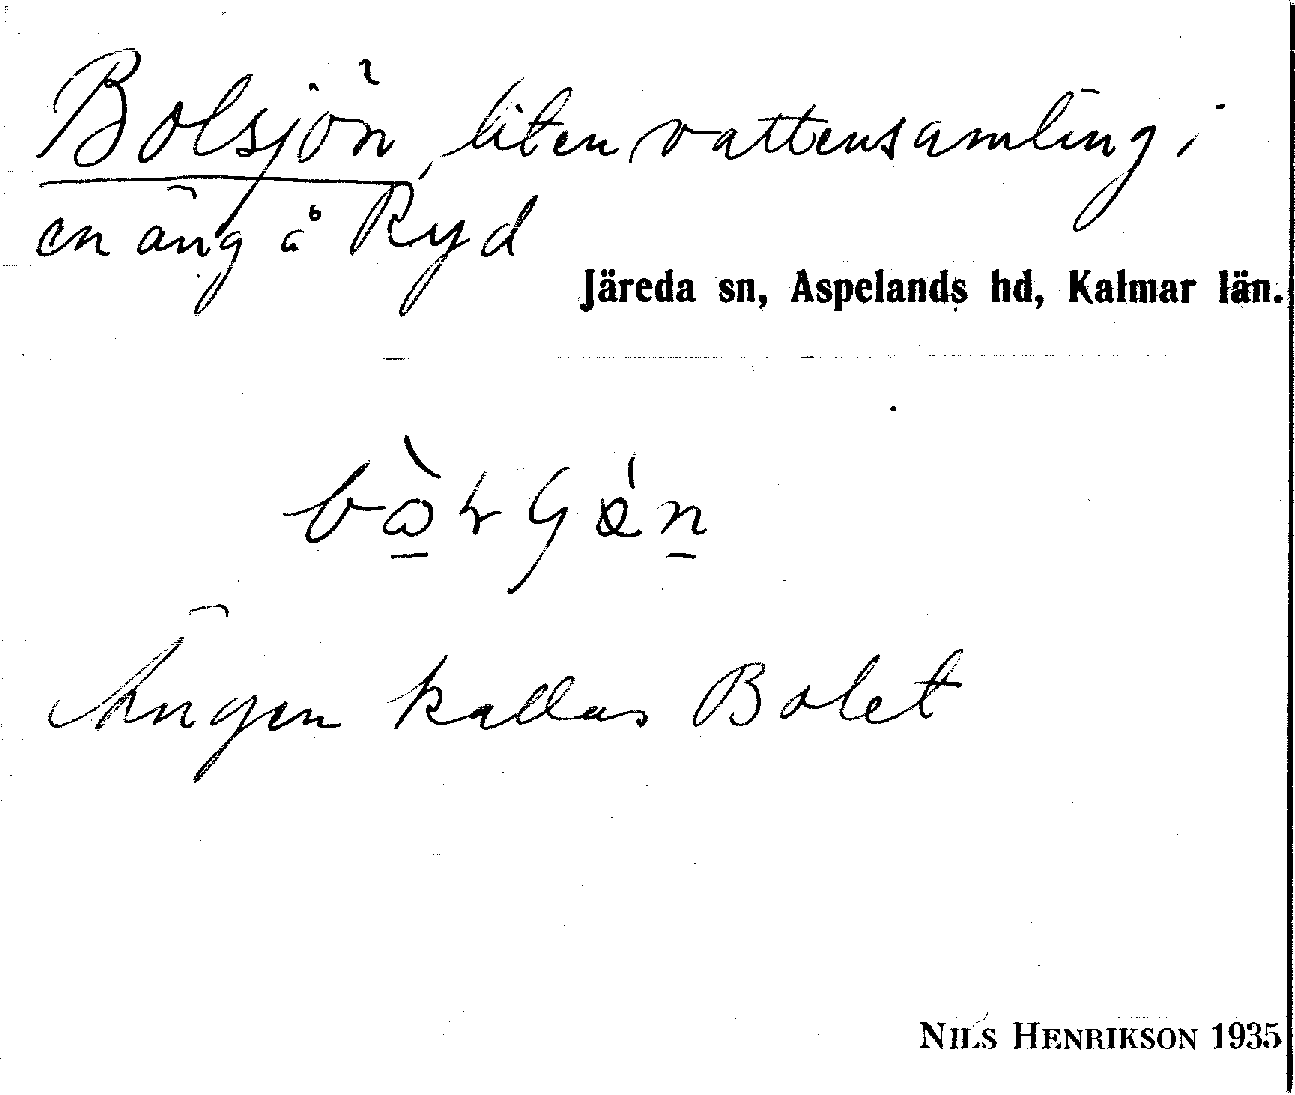 Bolsjön, liten vattensamling i
en äng å Ryd
Järeda sn, Aspelands hd, Kalmar län.
Ängen kallas Bolet
NILS HENRIKSON 1935